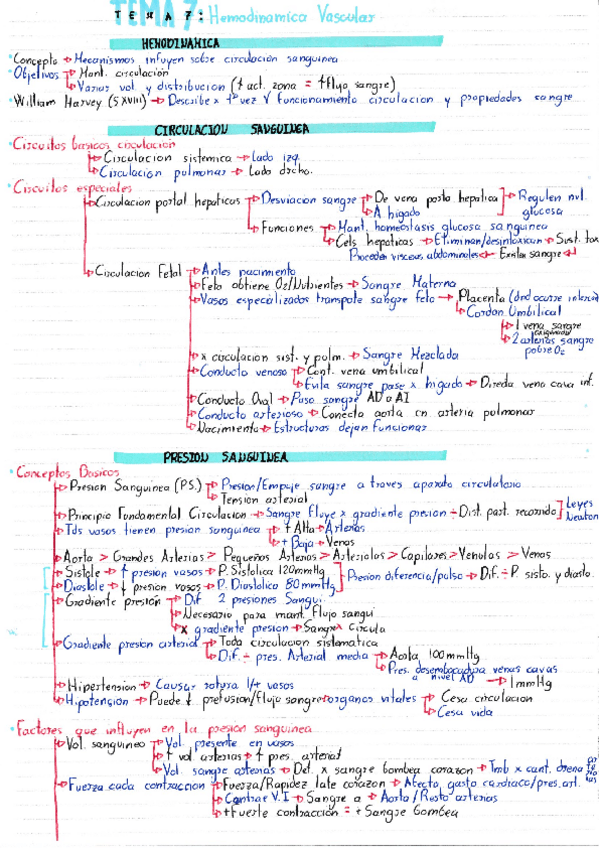 TEMA 7: Hemodinamica Vascular
HEMODINAMICA
Concepto → Mecanismos influyen sobre circulación sanguinea
Objetivos → Mant. circulación
→ Varias vol. y distribucion (↑ act. zona = ↑ flujo sangre)
William Harvey (S XVIII) → Describe x 1ª vez V funcionamiento circulacion y propiedades sangre
CIRCULACION SANGUINEA
Circuitos basicos circulación
→ Circulacion sistemica → Lado izq.
→ Circulación pulmonar → Lado drcho.
Circuitos especiales
→ Circulacion portal hepaticos → Desviacion sangre → De vena porta hepatica
→ A higado
Regulen nvl. glucosa
→ Funciones → Mant. homeostasis glucosa sanguinea
→ Cels hepaticas → Eliminan/desintoxican → Sust. tox
Proceden visceras abdominales ← Existen sangre
→ Circulacion Fetal → Antes nacimiento
→ Feto obtiene O2/Nutrientes → Sangre Materna
→ Vasos especializados transpote sangre feto → Placenta (dnd ocurre
→ Cordon Umbilical
→ 1 vena sangre oxigenada
→ 2 arterias sangre pobre O2
→ x circulacion sist. y pulm. → Sangre Mezclada
→ Conducto venoso → Cont. vena umbilical
→ Evita sangre pase x higado → Directa vena cava inf.
→ Conducto Oval → Paso sangre AD a AI
→ Conducto arterioso → Conecta aorta cn arteria pulmonar
→ Nacimiento → Estructuras dejan funcionar
PRESION SANGUINEA
Conceptos Basicos
→ Presion Sanguinea (PS.) → Presion/Empuje sangre a traves aparato circulatorio
→ Tension arterial
→ Principio Fundamental Circulacion → Sangre fluye x gradiente presion ÷ Dist. part. recorrido] Leyes Newton
→ Tds vasos tienen presion sanguinea → + Alta → Arterias
→ + Baja → Venas
→ Aorta > Grandes Arterias > Pequeños Arterias > Arteriolas > Capilares > Venulas > Venas
→ Sistole → ↑ presion vasos → P. Sistolica 120mmHg
→ Diastole → ↓ presion vasos → P. Diastolica 80mmHg
Presion diferencia/pulso → Dif. ÷ P. sisto. y diasto.
→ Gradiente presión → Dif 2 presiones Sangui.
→ Necesario para mant. flujo sangui
→ X gradiente presion → Sangre circula
→ Gradiente presion arterial → Toda circulacion sistematica
→ Dif. ÷ pres. Arterial media → Aorta 100mmHg
→ Pres. desembocadura venas cavas a nivel AD → 1mmHg
→ Hipertension → Causar rotura 1/+ vasos
→ Hipotension → Puede ↓ prefusion/flujo sangre → organos vitales → Cesa circulacion
→ Cesa vida
Factores que influyen en la presion sanguinea
→ Vol. sanguineo → Vol. presente en vasos
→ ↑ vol arterias → ↑ pres. arterial
→ Vol. sangre arterias → Det. x sangre bombea corazon → Tmb x cant. drena arteriolas
→ Fuerza cada contraccion → Fuerza/Rapidez late corazon → Afecta gasto cardiaco/pres. art.
→ Contrae V.I → Sangre a → Aorta/Resto arterias
→ + Fuerte contracción = + Sangre bombea